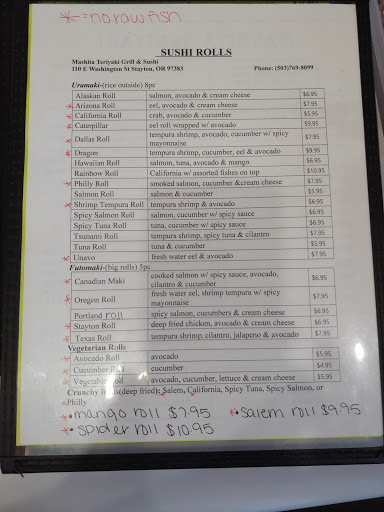 *=no raw fish
SUSHI ROLLS
Mashita Teriyaki Grill & Sushi
110 E Washington St Stayton, OR 97383 Phone: (503)769-8099
Uramaki-(rice outside) 8pc
Alaskan Roll salmon, avocado & cream cheese $6.95
* Arizona Roll eel, avocado & cream cheese $7.95
* California Roll crab, avocado & cucumber $5.95
* Caterpillar eel roll wrapped w/ avocado $9.95
* Dallas Roll tempura shrimp, avocado, cucumber w/ spicy mayonnaise $7.95
* Dragon tempura shrimp, cucumber, eel & avocado $9.95
Hawaiian Roll salmon, tuna, avocado & mango $6.95
Rainbow Roll California w/ assorted fishes on top $10.95
* Philly Roll smoked salmon, cucumber &cream cheese $7.95
Salmon Roll salmon & cucumber $5.95
* Shrimp Tempura Roll tempura shrimp & avocado $6.95
Spicy Salmon Roll salmon, cucumber w/ spicy sauce $6.95
Spicy Tuna Roll tuna, cucumber w/ spicy sauce $6.95
Tsunami Roll tempura shrimp, spicy tuna & cilantro $7.95
Tuna Roll tuna & cucumber $5.95
* Unavo fresh water eel & avocado $7.95
Futomaki-(big rolls) 5pc
* Canadian Maki cooked salmon w/ spicy sauce, avocado, cilantro & cucumber $6.95
* Oregon Roll fresh water eel, shrimp tempura w/ spicy mayonnaise $7.95
Portland roll spicy salmon, cucumbers & cream cheese $6.95
* Stayton Roll deep fried chicken, avocado & cream cheese $6.95
* Texas Roll tempura shrimp, cilantro, jalapeno & avocado $7.95
Vegetarian Rolls
* Avocado Roll avocado $5.95
* Cucumber Roll cucumber $4.95
* Vegetable Roll avocado, cucumber, lettuce & cream cheese $5.95
Crunchy Rolls(deep fried): Salem, California, Spicy Tuna, Spicy Salmon, or
Philly
*•mango roll $7.95 *•Salem roll $9.95
*•spider roll $10.95